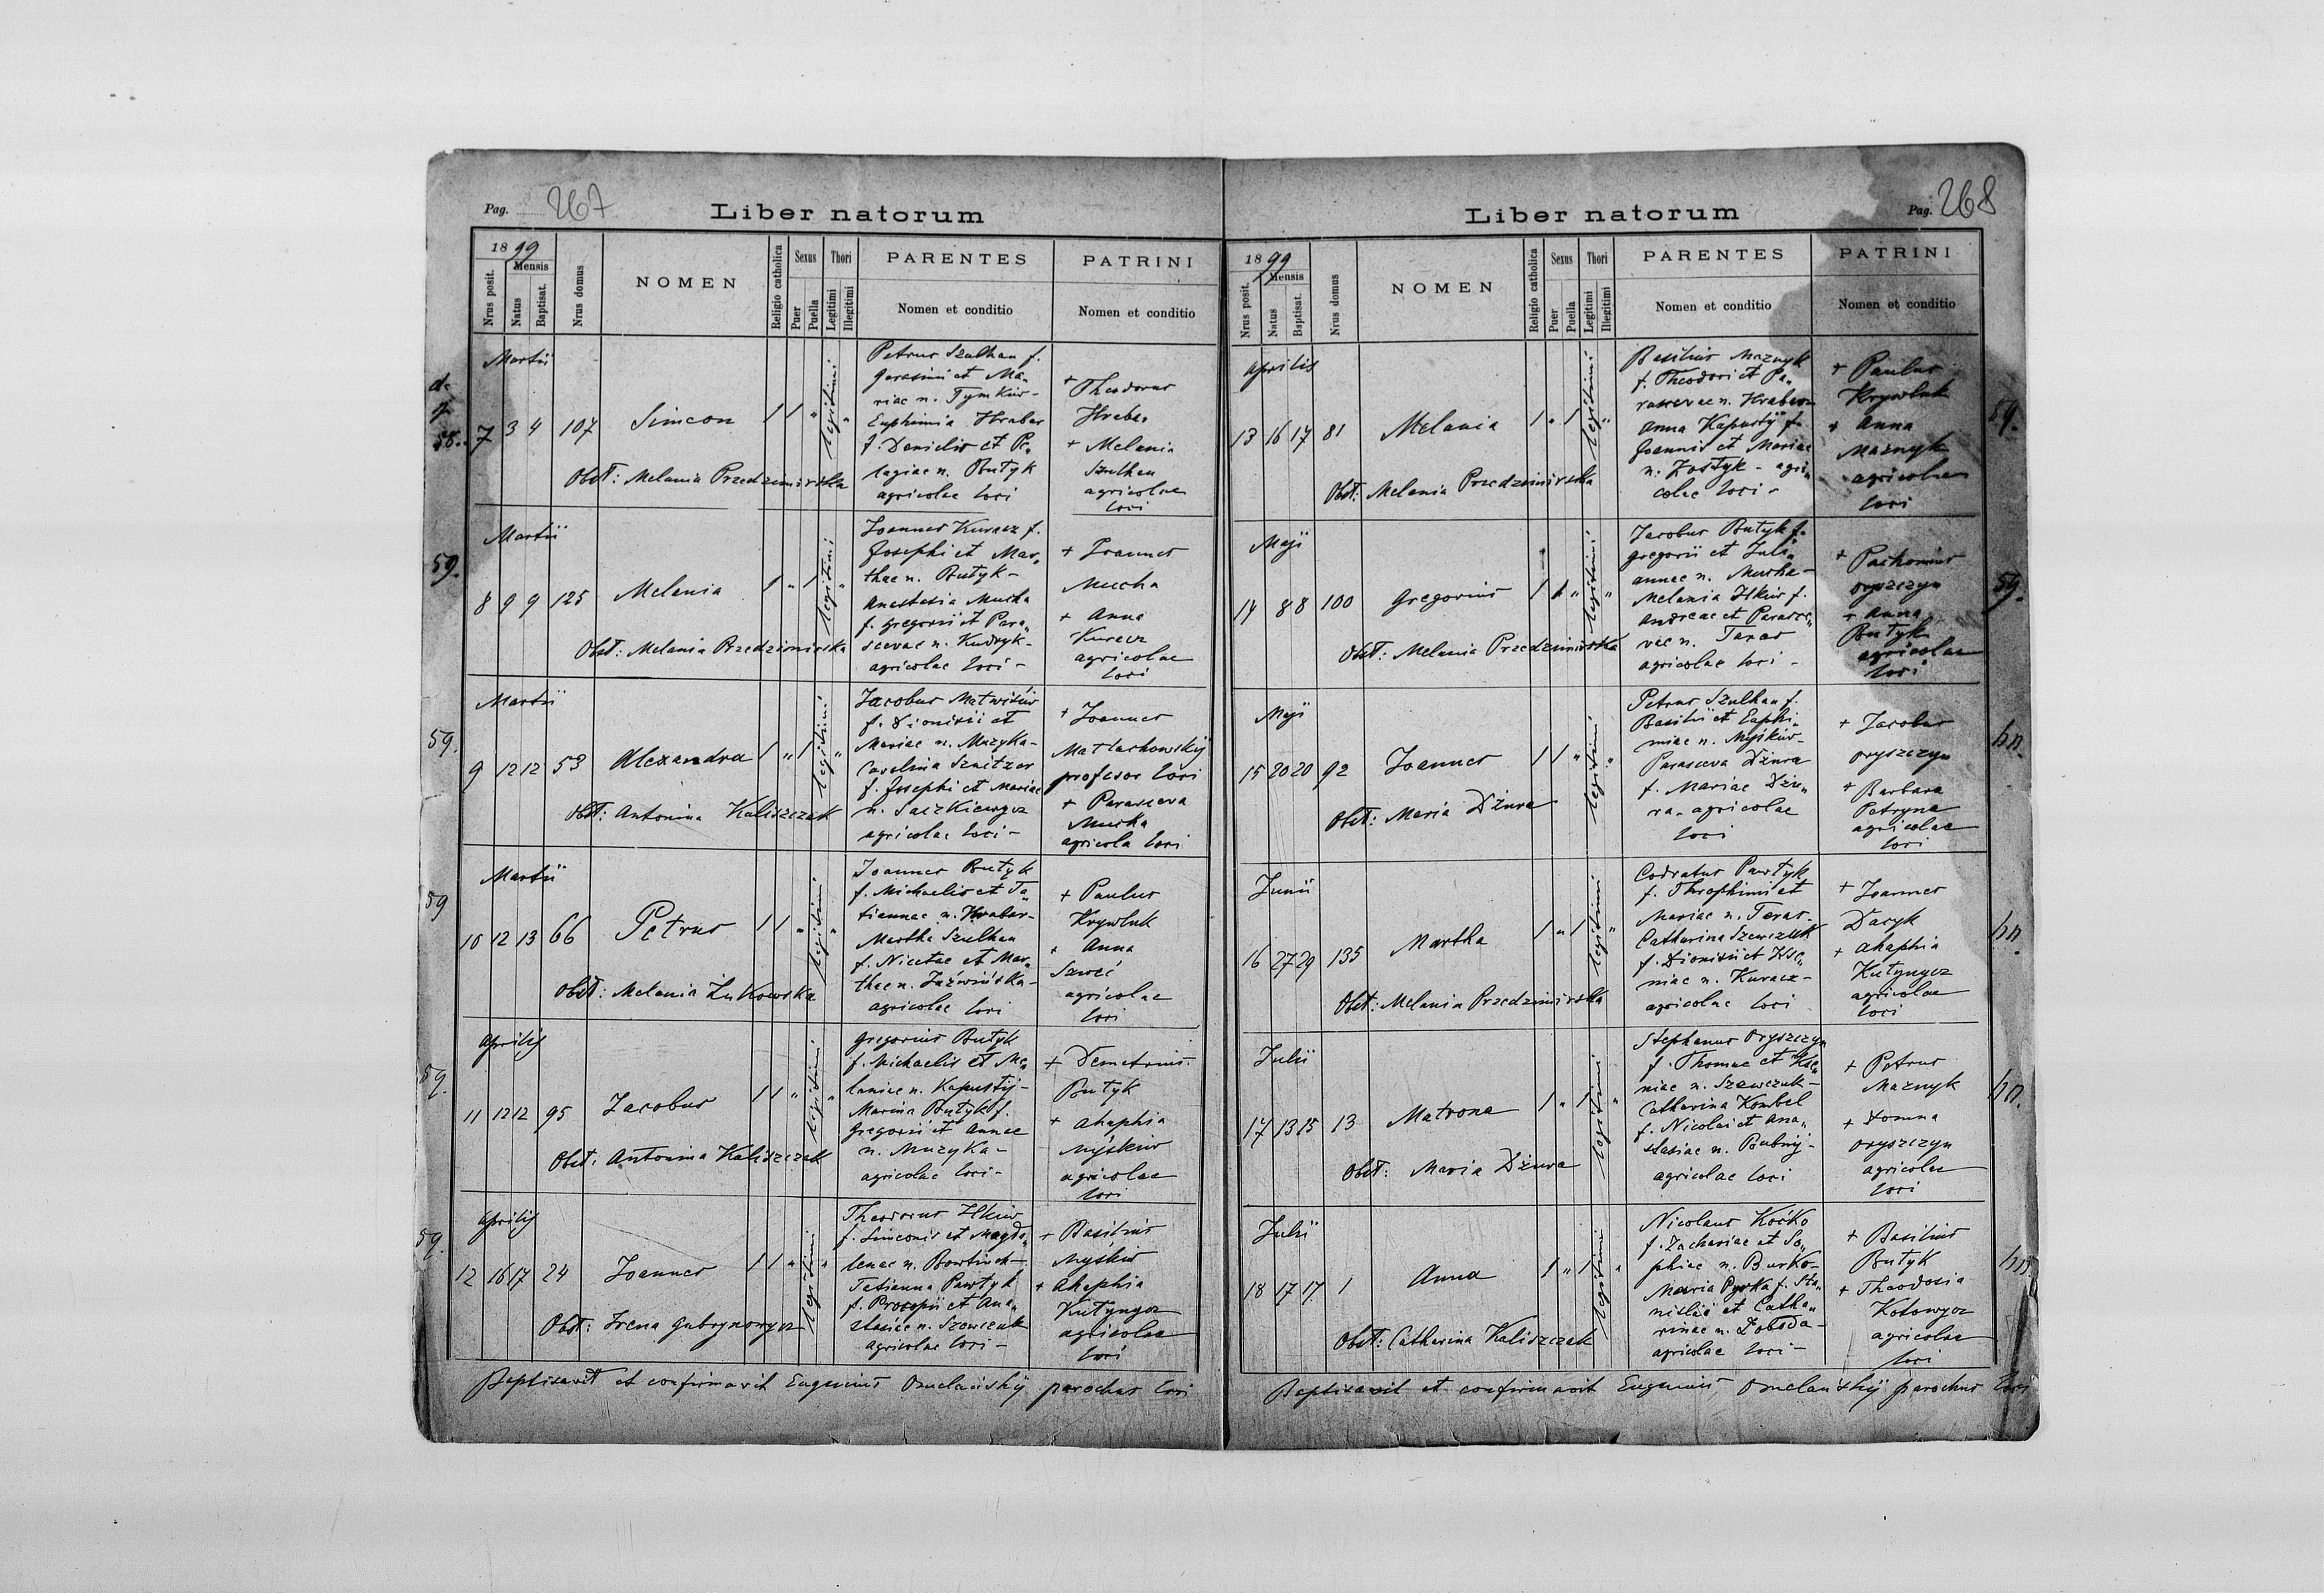 Pag. 267
Liber natorum
1899
Mensis
Nrus posit.
Natus
Baptisat.
Nrus domus
NOMEN
Religio catholica
Sexus
Puer
Puella
Thori
Legitimi
Illegitimi
PARENTES
Nomen et conditio
PATRINI
Nomen et conditio
Martii
7 3 4 107 Simeon 1 1 " legitimi "
Petrus Szulhan f.
Gerasimi et Ma„
riae n. Tymkiw -
Euphimia Hrabar
f. Danielis et Pe„
lagiae n. Butyk
agricolae loci
+ Theodorus
Hrabar
+ Melania
Szulhan
agricolae
loci
Obst: Melania Przedzimirska
59.
Martii
8 9 9 125 Melania 1 " 1 legitimi "
Joannes Kuracz f.
Josephi et Mar„
thae n. Butyk -
Anastasia Mucha
f. Gregorii et Para„
scevae n. Kudryk -
agricolae loci -
+ Joannes
Mucha
+ Anna
Kuracz
agricolae
loci
Obst: Melania Przedzimirska
59.
Martii
9 12 12 53 Alexandra 1 " 1 legitimi "
Jacobus Matwisiw
f. Dionisii et
Mariae n. Muzyka -
Carolina Sznitzer
f. Josephi et Mariae
n. Saszkiewycz
agricolae loci -
+ Joannes
Matlachowskij
profesor loci
+ Parasceva
Mucha
agricola loci
Obst: Antonina Kaliszczak
59
Martii
10 12 13 66 Petrus 1 1 " legitimi "
Joannes Butyk
f. Michaelis et Ta„
tiannae n. Hrabar -
Martha Szulhan
f. Nicetae et Mar„
thae n. Jaźwińska -
agricolae loci
+ Paulus
Krywluk
+ Anna
Szweć
agricolae
loci
Obst: Melania Żukowska
59.
Aprilij
11 12 12 95 Jacobus 1 1 " legitimi "
Gregorius Butyk
f. Michaelis et Me„
laniae n. Kapustij -
Marina Butyk f.
Gregorii et Annae
n. Muzyka -
agricolae loci -
+ Demetrius
Butyk
+ Ahaphia
Myśkiw
agricolae
loci
Obst: Antonina Kaliszczak
59.
Aprilij
12 16 17 24 Joannes 1 1 " legitimi "
Theodorus Ilkiw
f. Simeonis et Magda„
lenae n. -
Tatianna Pawtyk
f. Procopii et Ana„
stasiae n. Szewczuk
agricolae loci -
+ Basilius
Myśkiw
+ Ahaphia
Kutynycz
agricolae
loci
Obst: Irena Gabrynowycz
Baptisavit et confirmavit Eugenius Omelańskij parochus loci
Pag. 268
Liber natorum
1899
Mensis
Nrus posit.
Natus
Baptisat.
Nrus domus
NOMEN
Religio catholica
Sexus
Puer
Puella
Thori
Legitimi
Illegitimi
PARENTES
Nomen et conditio
PATRINI
Nomen et conditio
Aprilis
13 16 17 81 Melania 1 " 1 legitimi "
Basilius Maznyk
f. Theodori et Pa„
rascevae n. Hrabar
Anna Kapustij f.
Joannis et Mariae
n. Zostyk - agri„
colae loci -
+ Paulus
Krywluk
+ Anna
Maznyk
agricolae
loci
Obst: Melania Przedzimirska
59.
Maji
14 8 8 100 Gregorius 1 1 " legitimi "
Jacobus Butyk f.
Gregorii et Juli„
annae n. Mucha -
Melania Ilkiw f.
Andreae et Parasce„
vae n. Taras
agricolae loci -
+ Pachomius
Oryszczyn
+ Anna
Butyk
agricolae
loci
Obst: Melania Przedzimirska
59.
Maji
15 20 20 92 Joannes 1 1 " legitimi "
Petrus Szulhan f.
Basilii et Euphi„
miae n. Myśkiw -
Parasceva Dżura
f. Mariae Dżu„
ra. agricolae
loci
+ Jacobus
Oryszczyn
+ Barbara
Patryna
agricolae
loci
Obst: Maria Dżura
Junii
16 27 29 135 Martha 1 " 1 legitimi "
Codratus Pawtyk
f. Throphimi et
Mariae n. Taras -
Catharina Szewczuk
f. Dionisii et Xse„
niae n. Kuracz -
agricolae loci
+ Joannes
Dacyk
+ Ahaphia
Kutynycz
agricolae
loci
Obst: Melania Przedzimirska
Julii
17 13 15 13 Matrona 1 " 1 legitimi "
Stephanus Oryszczyn
f. Thomae et Xse„
niae n. Szewczuk -
Catharina Kombel
f. Nicolai et Ana„
stasiae n. Bubnij -
agricolae loci
+ Petrus
Maznyk
+ Domna
Oryszczyn
agricolae
loci
Obst: Maria Dżura
Julii
18 17 17 1 Anna 1 " 1 legitimi "
Nicolaus Koćko
f. Zachariae et So„
phiae n. Burko -
Maria Pyrka f. Sta„
nislai et Catha„
rinae n. Zoboda -
agricolae loci -
+ Basilius
Butyk
+ Theodosia
Kotowycz
agricolae
loci
Obst: Catharina Kaliszczak
Baptisavit et confirmavit Eugenius Omelańskij parochus loci